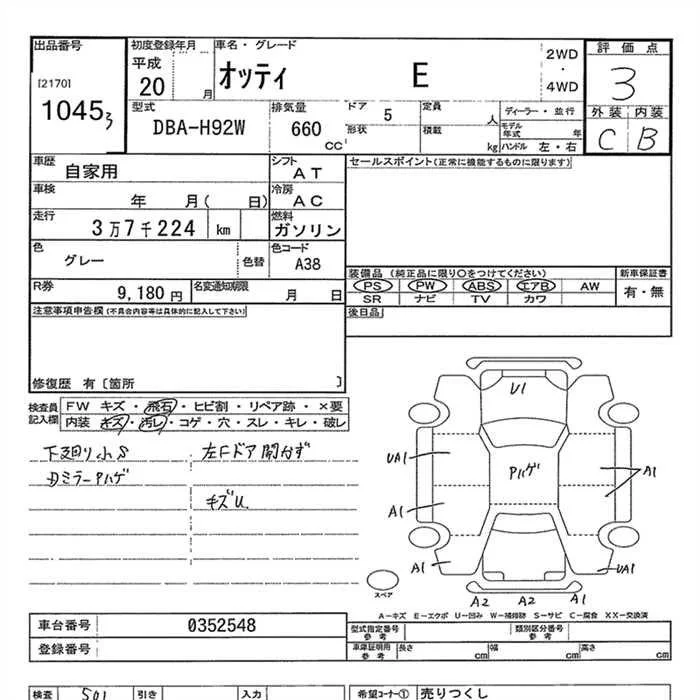 出品番号
[2170]
1045 3
初度登録年月
平成
20 月
車名・グレード
オッティ E
2WD
・
4WD
評価点
3
外装 内装
C B
型式
DBA-H92W
排気量
660
CC
ドア 5
形状
定員 人
積載 kg
ディーラー・並行
モデル年式 年
ハンドル 左・右
車歴
自家用
シフト
AT
車検
年 月( 日)
冷房
AC
走行
3万7千224 km
燃料
ガソリン
色
グレー
色替
色コード
A38
R券
9,180 円
名変通知期限
月 日
セールスポイント(正常に機能するものに限ります)
装備品(純正品に限り○をつけてください)
新車保証書
PS PW ABS エアB AW
有・無
SR ナビ TV カワ
後日品
注意事項申告欄(不具合内容等は具体的に記入して下さい)
修復歴 有〔箇所 〕
検査員
記入欄
FW キズ・飛石・ヒビ割・リペア跡・×要
内装 キズ・汚レ・コゲ・穴・スレ・キレ・破レ
下廻り小S
左Fドア開かず
Dミラーアハゲ
キズU
U1
UA1
Pハゲ
A1
A1
A1
UA1
A2 A2 A1
スペア
A-キズ E-エクボ U-凹み W-補修跡 S-サビ C-腐食 XX-交換済
車台番号
0352548
登録番号
型式指定番号
参考
類別区分番号
参考
車庫証明用
参考
長さ cm
幅 cm
高さ cm
検査
501
引き
入力
希望コーナー①
売りつくし